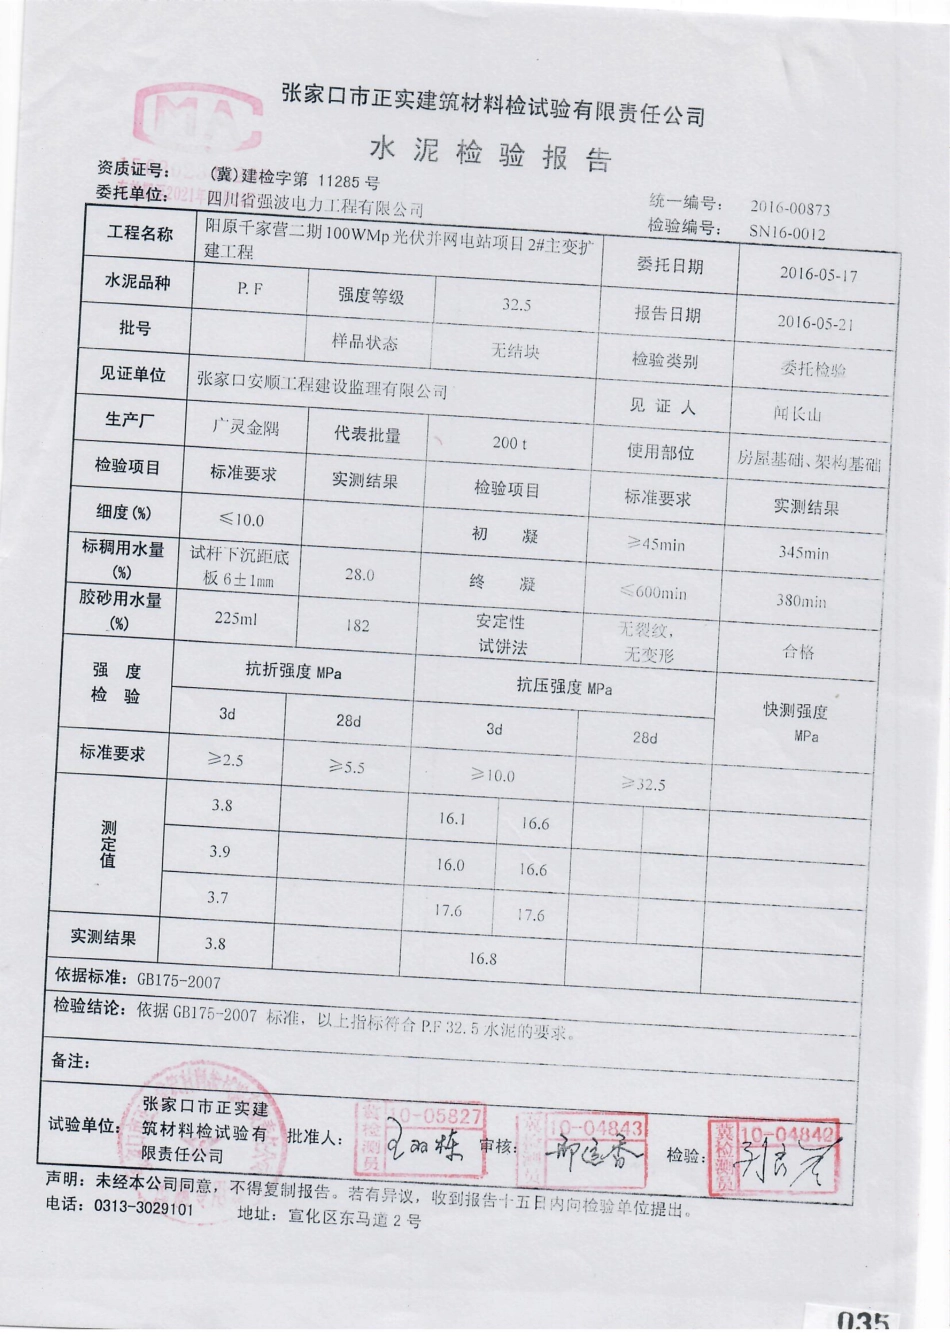 张家口市正实建筑材料检试验有限责任公司
水泥检验报告
资质证号： (冀)建检字第 11285 号
委托单位： 四川省强波电力工程有限公司
统一编号： 2016-00873
检验编号： SN16-0012
工程名称 阳原千家营二期100WMp光伏并网电站项目2#主变扩建工程 委托日期 2016-05-17
水泥品种 P.F 强度等级 32.5 报告日期 2016-05-21
批号 样品状态 无结块 检验类别 委托检验
见证单位 张家口安顺工程建设监理有限公司 见证人 闻长山
生产厂 广灵金隅 代表批量 200t 使用部位 房屋基础、架构基础
检验项目 标准要求 实测结果 检验项目 标准要求 实测结果
细度(%) ≤10.0 初凝 ≥45min 345min
标稠用水量(%) 试杆下沉距底板6±1mm 28.0 终凝 ≤600min 380min
胶砂用水量(%) 225ml 182 安定性试饼法 无裂纹，无变形 合格
强度检验 抗折强度 MPa 抗压强度 MPa 快测强度 MPa
3d 28d 3d 28d
标准要求 ≥2.5 ≥5.5 ≥10.0 ≥32.5
测定值 3.8 16.1 16.6
3.9 16.0 16.6
3.7 17.6 17.6
实测结果 3.8 16.8
依据标准：GB175-2007
检验结论：依据GB175-2007 标准，以上指标符合P.F 32.5水泥的要求。
备注：
试验单位： 张家口市正实建筑材料检试验有限责任公司 批准人： 审核： 检验：
冀检测员 10-05827
冀检测员 10-04843
冀检测员 10-04842
声明：未经本公司同意，不得复制报告。若有异议，收到报告十五日内向检验单位提出。
电话：0313-3029101 地址：宣化区东马道2号
035